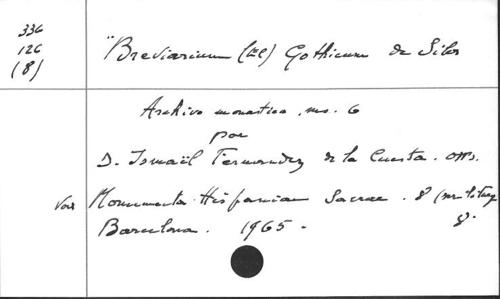 336
126
(8)
"Breviarium (El) Gothicum de Silos
Archivo monastico, ms. 6
por
D. Ismaël Fernandez de la Cuesta. OSB.
Voir Monumenta Hispaniae Sacrae. 8 (ser. liturg
Barcelona. 1965. 8.